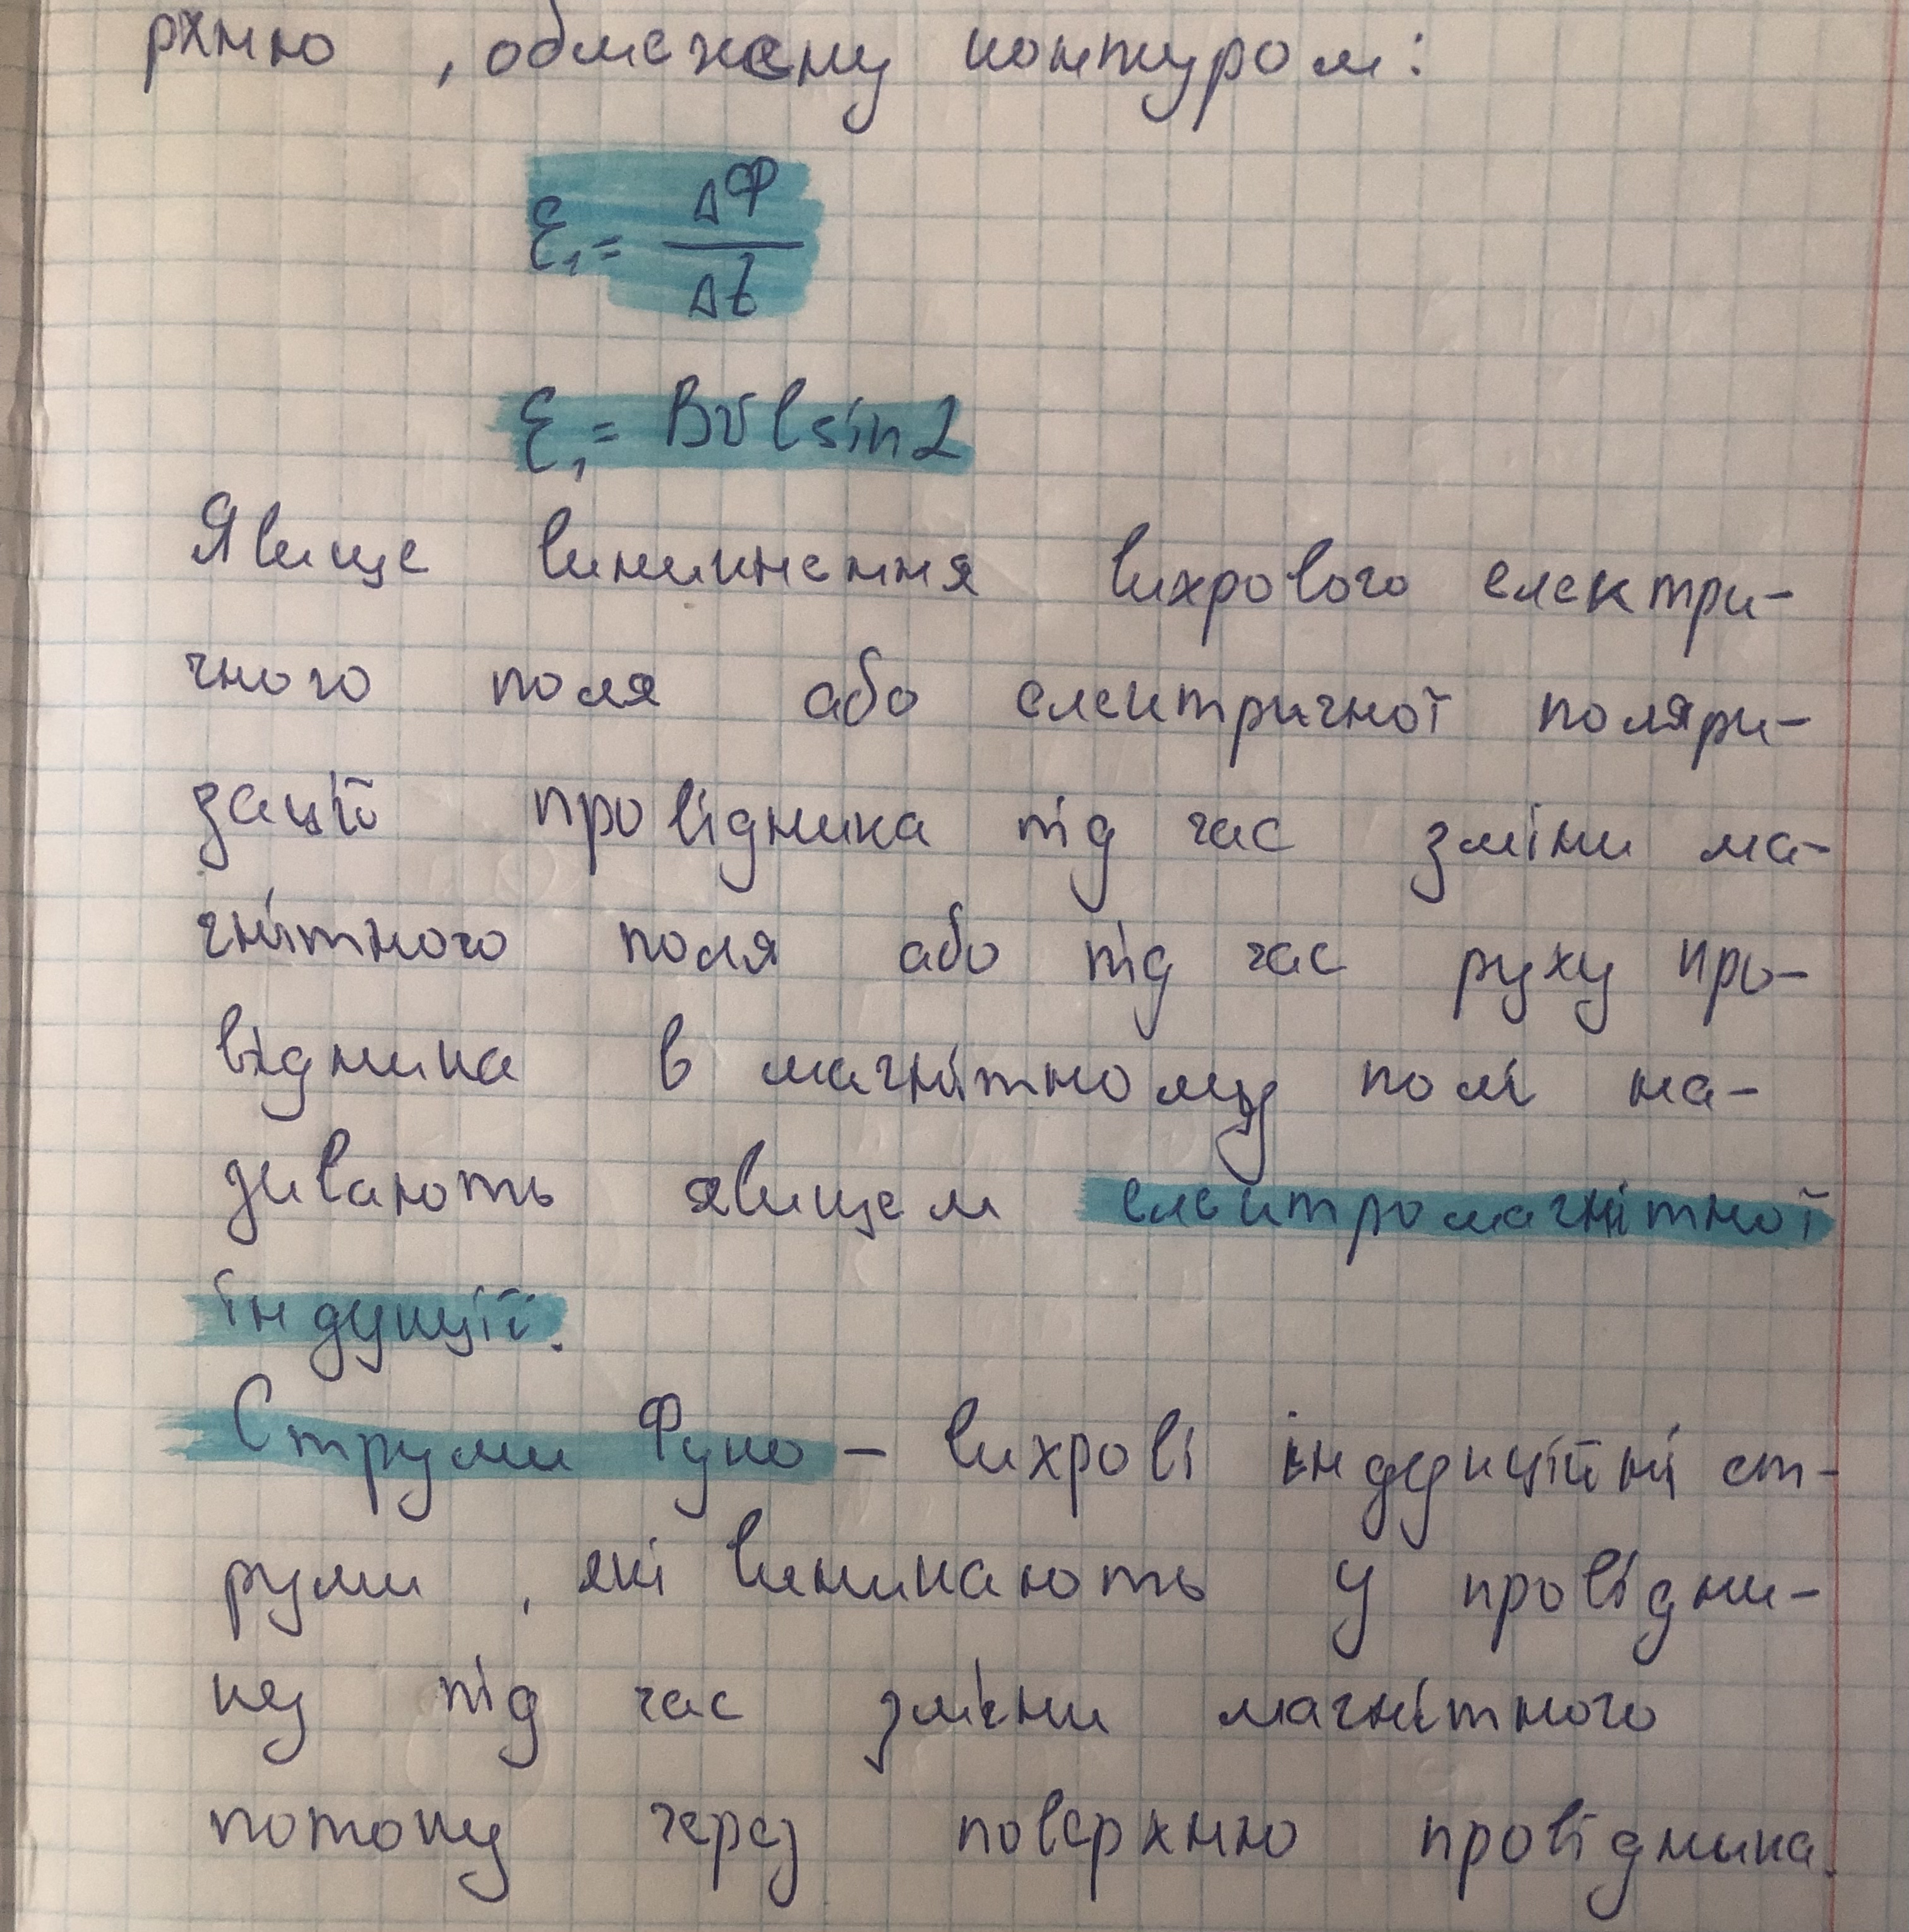 рхню , обмежену контуром:
ε₁ = ΔΦ / Δt
ε₁ = Bvl sin α
Явище виникнення вихрового електри-
чного поля або електричної поляри-
зації провідника під час зміни ма-
гнітного поля або під час руху про-
відника в магнітному полі на-
зивають явищем електромагнітної
індукції.
Струми Фуко – вихрові індукційні ст-
руми , які виникають у провідни-
ку під час зміни магнітного
потоку через поверхню провідника.